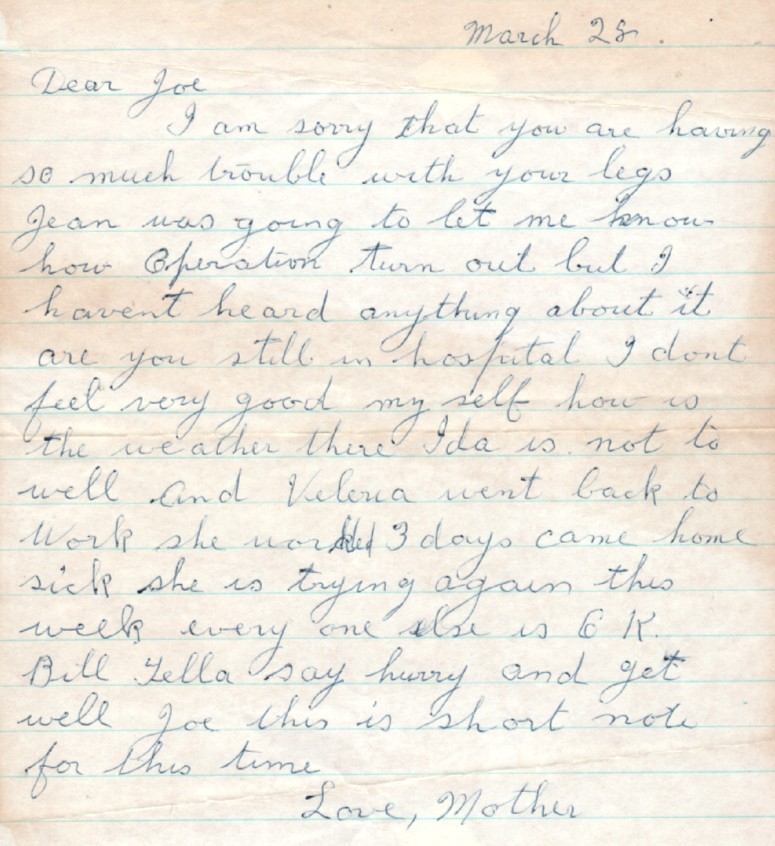 March 28.
Dear Joe
I am sorry that you are having
so much trouble with your legs
Jean was going to let me know
how Operation turn out but I
havent heard anything about it
are you still in hospital I dont
feel very good my self how is
the weather there Ida is not to
well and Veleria went back to
Work she worked 3 days came home
sick she is trying again this
week every one else is O K.
Bill Fella say hurry and get
well Joe this is short note
for this time
Love, Mother